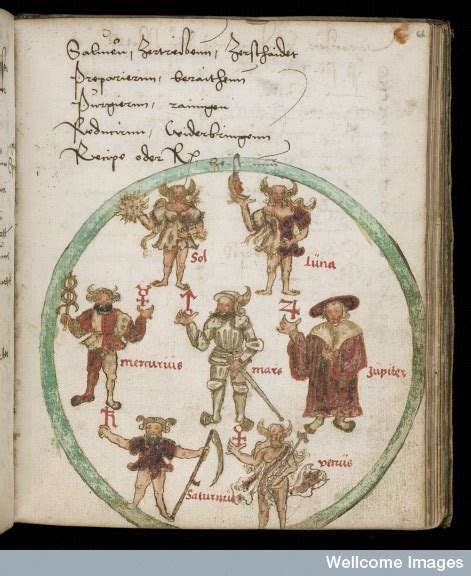 Soluieren / Zertreibenn / Zerschaidet
Preparierenn / beraithenn
Purgierenn / rainigen
Reducirenn / widerbringenn
Recipe oder Rx
Sol
Luna
☿
♂
♃
mercurius
mars
Jupiter
♄
♀
Saturnus
venus
Wellcome Images